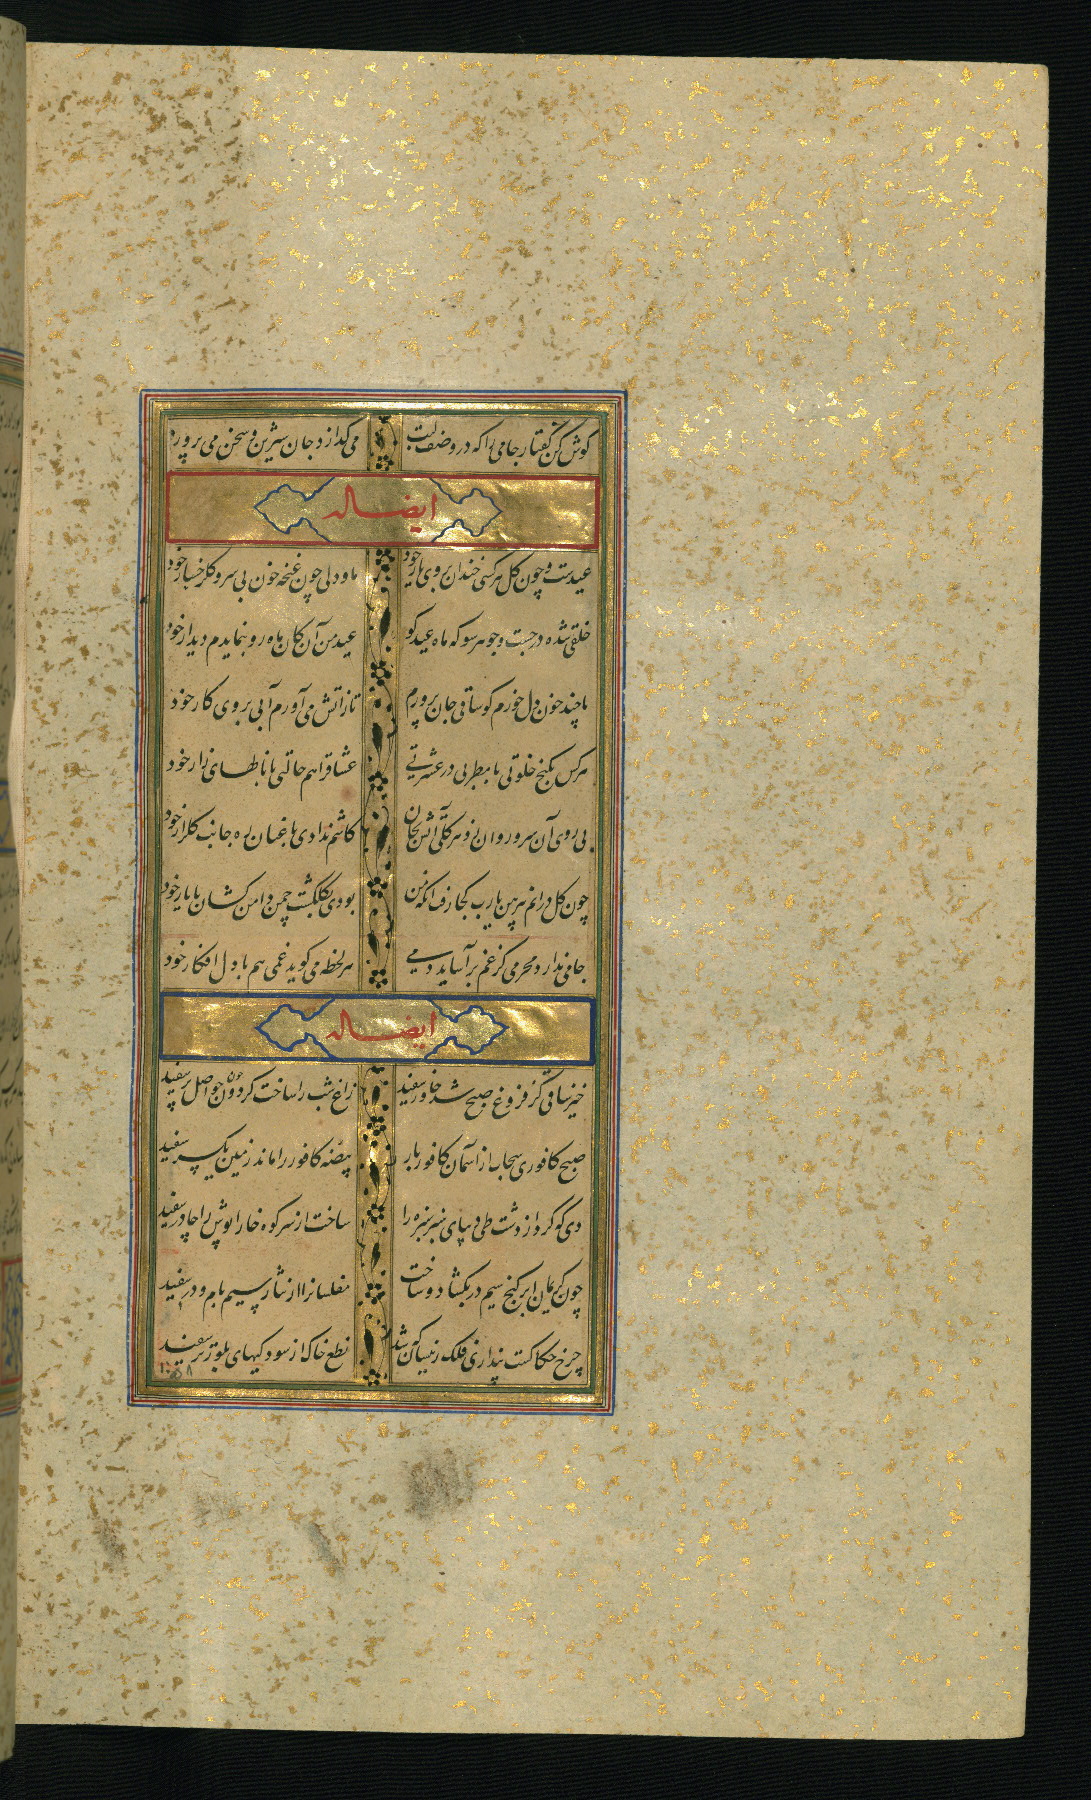 گوش کن گفتار جامی را که در وصف لبت
می گدازد جان شیرین و سخن می پرورد
ایضا له
عیدست و چون گل هر کسی خندان بروی یار خود
ما و دلی چون غنچه خون بی سرو گلرخسار خود
خلقی شده در جست و جو هر سو که ماه عید کو
عید من آن کان ماه رو بنمایدم دیدار خود
تا چند خون دل خورم کو ساقی جان پرورم
تا ز آتش می آورم آبی بروی کار خود
هر کس بکنج خلوتی با مطربی در عشرتی
عشاق را هم حالتی با نالهای زار خود
بی روی آن سرو روان زد هر گلی آتش بجان
کاشم ندادی باغبان ره جانب گلزار خود
چون گل درانم پیرهن یارب کجا رفت آنکه من
بودی بگلگشت چمن دامن کشان با یار خود
جامی ندارد محرمی کز غم برآساید دمی
هر لحظه می گوید غمی هم با دل افکار خود
ایضا له
خیز ساقی کز فروغ صبح شد خاور سفید
زاغ شب را ساخت گردون چون حواصل پر سفید
صبح کافوری سحاب از آسمان کافور بار
بیضه کافور را ماند زمین یکسر سفید
دی که کرد از دشت طی دیبای سبز سبزه را
ساخت از سر کوه خارا پوش را چادر سفید
چون کریمان ابر گنج سیم در بگشاد و ساخت
مفلسانرا از نثار سیم بام و در سفید
چرخ حکاکست پنداری فلک زینسان که شد
نطع خاک از سودگیهای بلور تر سفید